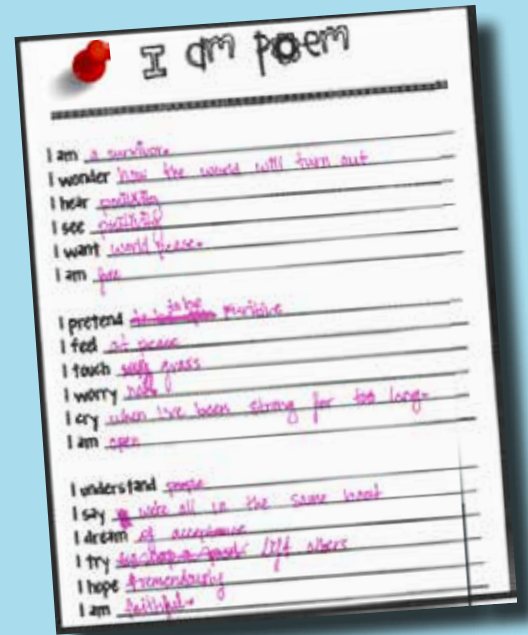 I am poem
I am a survivor.
I wonder how the world will turn out
I hear positivity
I see positivity
I want world peace.
I am free
I pretend to be positive
I feel at peace
I touch grass
I worry
I cry when i've been strong for too long.
I am open
I understand people
I say we're all in the same boat
I dream of acceptance
I try lift others
I hope tremendously
I am faithful.